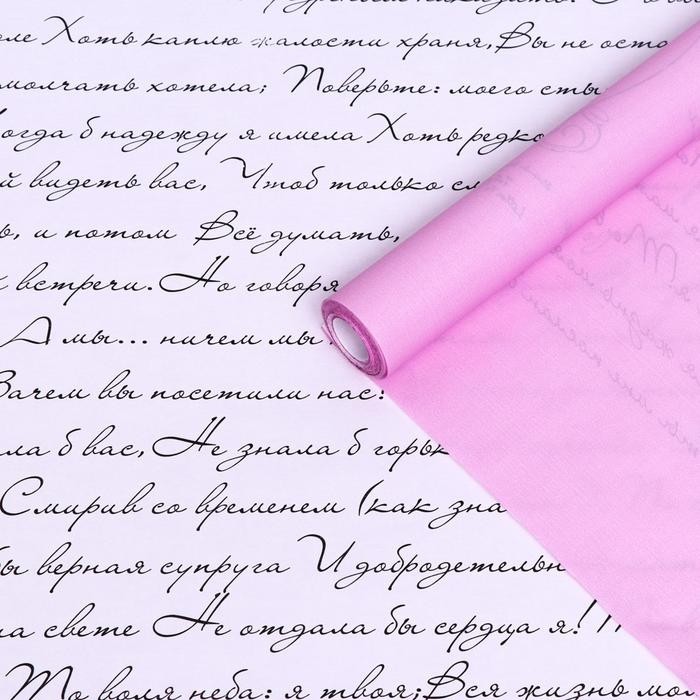 Хоть каплю жалости храня, Вы не оста
молчать хотела; Поверьте: моего сты
Когда б надежду я имела Хоть редко
й видеть вас, Чтоб только сл
ь, и потом Всё думать,
встречи. Но говоря
А мы... ничем мы
Зачем вы посетили нас:
ла б вас, Не знала б горьк
Смирив со временем (как зна
бы верная супруга И добродетельн
на свете Не отдала бы сердца я! 
То воля неба: я твоя; Вся жизнь мо